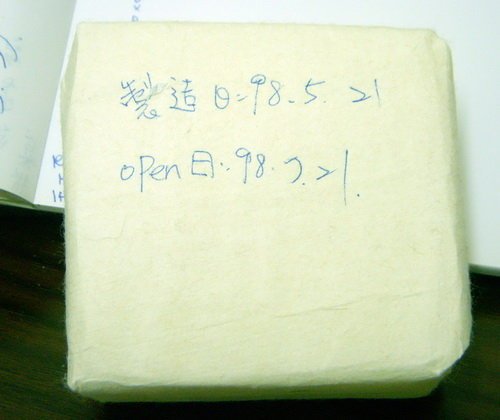 製造日:98.5.21
open日:98.7.21.